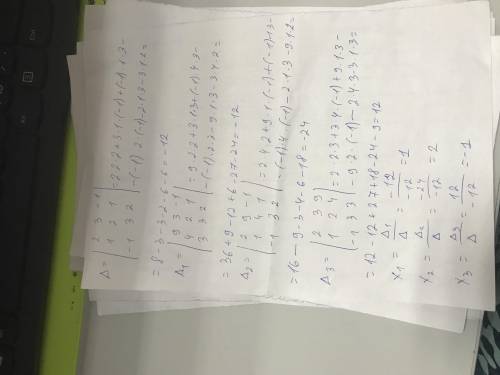 Δ = | 2 3 -1 |
| 1 2 1 | = 2·2·2+3·1·(-1)+(-1)·1·3-
| -1 3 2 | -(-1)·2·(-1)-2·1·3-3·1·2=
=8-3-3-2-6-6=-12
Δ1 = | 9 3 -1 |
| 4 2 1 | = 9·2·2+3·1·3+(-1)·4·3-
| 3 3 2 | -(-1)·2·2-9·1·3-3·4·2=
=36+9-12+6-27-24=-12
Δ2 = | 2 9 -1 |
| 1 4 1 | = 2·4·2+9·1·(-1)+(-1)·1·3-
| -1 3 2 | -(-1)·4·(-1)-2·1·3-9·1·2=
=16-9-3-4-6-18=-24
Δ3 = | 2 3 9 |
| 1 2 4 | = 2·2·3+3·4·(-1)+9·1·3-
| -1 3 3 | -9·2·(-1)-2·4·3-3·1·3=
=12-12+27+18-24-9=12
x1 = Δ1/Δ = -12/-12 = 1
x2 = Δ2/Δ = -24/-12 = 2
x3 = Δ3/Δ = 12/-12 = -1